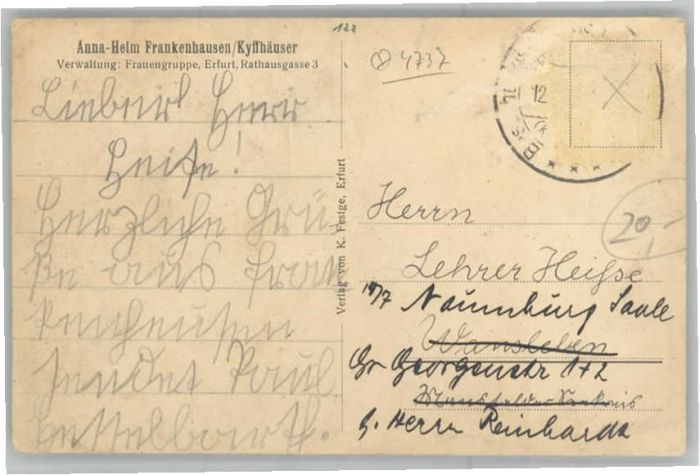 122
Anna-Heim Frankenhausen/Kyffhäuser
Verwaltung: Frauengruppe, Erfurt, Rathausgasse 3
Lieber Herr
Heiße!
Herzliche Grü-
ße aus Fran
kenhausen
sendet Paul
Verlag von K. Festge, Erfurt
4737
12
20,-
Herrn
Lehrer Heiße
Naumburg Saale
Wansleben
Georgenstr 172
b. Herrn Reinhardt